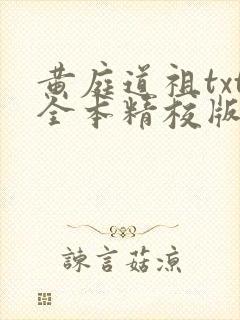 黄庭道祖txt
全本精校版
諫言菇凉